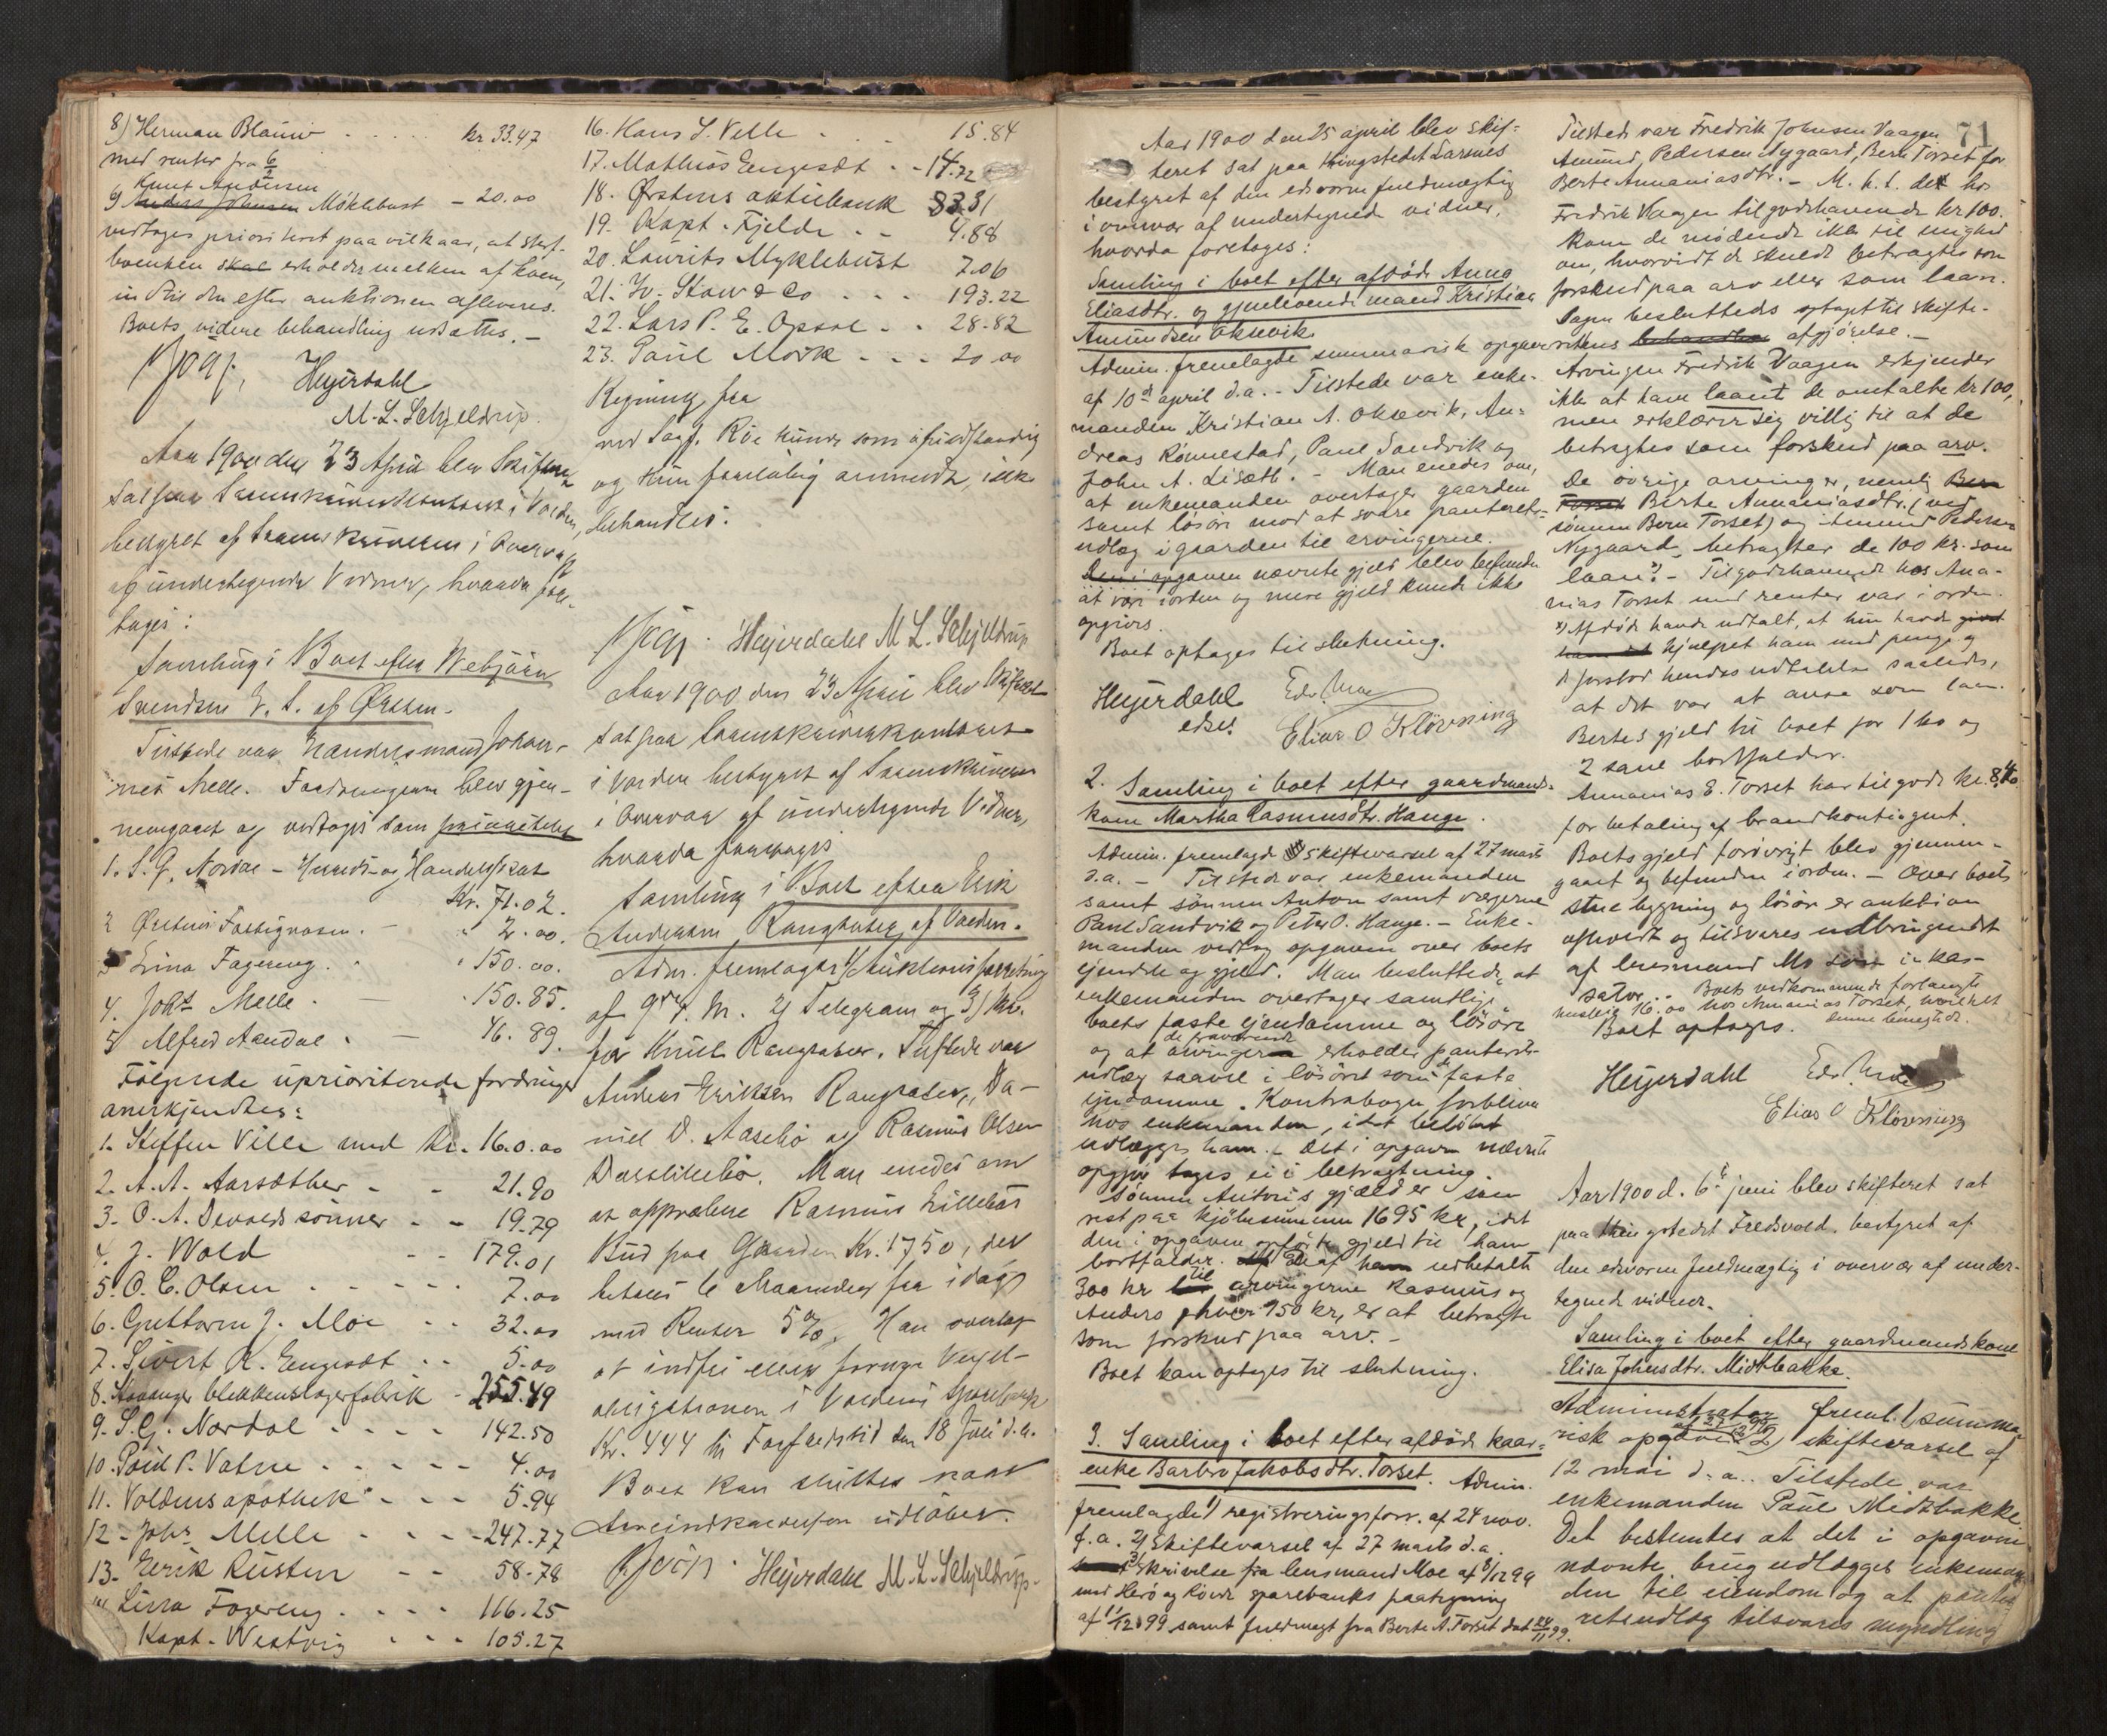 8) Herman Blauw . . . . kr 33.47
med renter fra 6/2
Knut Andersen
9 Anders Johnsen Myklebust - 20.00
vedtages prioriteret paa vilkaar, at
skal erholder melken af koen,
indtil den efter auktionen afleveres.
Boets videre behandling udsattes. -
Heyerdahl
M. L. Schjeldrup.
Aar 1900 den 23 April blev Skifteret
sat paa Sorenskriverkontoret i Volden,
bestyret af Sorenskriveren i Overvær
af undertegnede Vidner, hvorda fore-
tages:
Samling i Boet efter Webjørn
Svendsen G. S. af Ørsten.
Tilstede var Handelsmand Johan-
nes Melle. Fordringerne blev gjen-
nemgaaet og vedtages som prioriterede
1. S. G. Nordal - Herreds- og Handelsskat
Kr. 71.02.
2 Ørstens . - " 2.00.
3 Lina Fagereng. " 150.00.
4. Johs Melle . - 150.85.
5 Alfred Aandal . - 46.89.
Følgende uprioriterede fordringer
anerkjendtes:
1. Steffen Ville med Kr. 160.00
2. A. A. Aarsæther - - 21.90
3. O. A. Devolds sønner - - 19.79
4. J. Wold - - 179.01
5. O. C. Olsen - - - - - 7.00
6. Guttorm J. Moe - - 32.00
7. Sivert K. Engeset - - 5.00
8. Stavanger blikkenslagerfabrik - 255.49
9. S. G. Nordal - - - - 142.50
10. Poul P. Vatne - - - - - 4.00
11. Voldens apothek - - - 5.94
12 - Johs Melle - - - - 247.77
13. Eerik Rusten - - 58.78
Lina Fagereng . - - - 116.25
Kapt. Westvig - - - 105.27
16. Hans S. Velle . . 15.84
17. Mathias Engeset . - 14.72
18. Ørstens aktiebank 83.31
19. Kapt. Fjelde . - 4.88
20. Laurits Myklebust 7.06
21. Jv. Staw & Co . . . 193.22
22. Lars P. E. Opsal . . 28.82
23. Paul Mork - . . 20.00
Regning fra
ved Sagf. Røe kunde som ufuldstændig
og kun foreløbig anmeldt, ikke
behandles.
Heyerdahl M L. Schjeldrup
Aar 1900 den 23 April blev Skifteret
sat paa Sorenskriverkontoret
i Volden bestyret af Sorenskriveren
i Overvær af undertegnede Vidner,
hvorda foretages
Samling i Boet efter Erik
Andersen Rangsæter af Volden.
Adm. fremlagde 1/ Auktionsforretning
af 9de f. M. 2/ Telegram og 3/
fra Knut Rangsæter. Tilstede var
Anders Eriksen Rangsæter, Da-
niel D. Aasebø og Rasmus Olsen
Man enedes om
at approbere Rasmus Lillebøs
Bud paa Gaarden Kr. 1750, der
betales 6 Maaneder fra idag
med Renter 5 %. Han overtog
at indfri eller fornye Vexel-
obligationen i Voldens Sparebank
Kr. 444 til Forfaldstid den 18 Juli d.a.
Boet kan sluttes naar
udløber.
Heyerdahl M. L. Schjeldrup.
71
Aar 1900 den 25 april blev skif-
teret sat paa thingstedet Larsnes
bestyret af den edsvorne fuldmægtig
i overvær af undertegnede vidner,
hvorda foretages:
Samling i boet efter afdøde Anna
Eliasdtr. og gjenlevende mand Kristian
Amundsen Oksevik
Admin. fremlagde summarisk opgave
af 10de april d.a. - Tilstede var enke-
manden Kristian A. Oksevik, An-
dreas Rønnestad, Paul Sandvik og
John A. Lisæth. - Man enedes om,
at enkemanden overtager gaarden
samt løsøre mod at svare panterets-
udlæg i gaarden til arvingerne.
Den i opgaven nævnte gjeld blev befunden
at være i orden og mere gjeld kunde ikke
opgives.
Boet optages til slutning.
Heyerdahl Edv. Moe
edsv. Elias O Kløvning
2. Samling i boet efter gaardmands-
kone Martha Rasmusdtr. Hauge.
Admin. fremlagde skiftevarsel af 27 marts
d.a. - Tilstede var enkemanden
samt sønnen Anton samt værgerne
Paul Sandvik og Peter O. Hauge. - Enke-
manden vedtog opgaven over boets
ejendele og gjeld. Man besluttede, at
enkemanden overtager samtlige
boets faste ejendomme og løsøre
de fraværende
og at arvingerne erholder panterets-
udlæg saavel i løsøret som faste
ejendomme. Kontrabogen forbliver
hos enkemanden, idet beløbet
udlægges ham. - Det i opgaven nævnte
opgjør tages ei i betragtning.
Sønnen Antons gjæld er som
rest paa kjøbesummen 1695 kr, idet
den i opgaven opførte gjeld til ham
bortfalder. De af ham udbetalte
300 kr til arvingerne Rasmus og
Anders, hver 150 kr, er at betragte
som forskud paa arv. -
Boet kan optages til slutning.
3. Samling i boet efter afdøde kaar-
enke Barbro Jakobsdtr. Torset. Admin.
fremlagde 1) registreringsforr. af 24 nov.
f.a. 2) Skiftevarsel af 27 marts d.a.
3) Skrivelse fra lensmand Moe af 8/12 99
med Herø og Røvde sparebanks paategning
af 11/12 99 samt fuldmagt fra Berte A. Torset dat 24/11 99.
Tilstede var Fredrik Johnsen Vaagen
Amund Pedersen Nygaard, Bern Torset for
Berte Annaniasdtr. - M. h. t. det hos
Fredrik Vaagen tilgodehavende kr 100.
kom de mødende ikke til enighed
om, hvorvidt de skulde betragtes som
forskud paa arv eller som laan.
Sagen besluttedes optaget til skifte-
rettens behandlin afgjørelse. -
Arvingen Fredrik Vaagen erkjender
ikke at have laant de omtalte kr 100,
men erklærer sig villig til at de
betragtes som forskud paa arv.
De øvrige arvinger, nemlig Bern
Torset Berte Annaniasdtr. (ved
sønnen Bern Torset) og Amund Pedersen
Nygaard, betragter de 100 kr. som
laan x). - Tilgodehavende hos Ana-
nias Torset med renter var i orden.
x) Afdøde havde udtalt, at hun havde givet
ham det hjulpet ham med penge og
forstod hendes udtalelse saaledes,
at det var at anse som laan.
Bertes gjeld til boet for 1 ko og
2 saue bortfalder.
Annanias E. Torset har tilgode kr. 8,40.
for betaling af brandkontingent.
Boets gjeld forøvrigt blev gjennem-
gaaet og befunden iorden. - Over boets
stuebygning og løsøre er auktion
afholdt og tilsvares udbringendet
af lensmand Mo som inkas-
sator. Boets vedkommende forlangte
husleie 16.00 hos Annanias Torset, hvorhos
denne benegtede.
Boet optages.
Heyerdahl Edv. Moe
Elias O Kløvning
Aar 1900 d. 6te juni blev skifteret sat
paa thingstedet Fredsvold. bestyret af
den edsvorne fuldmægtig i overvær af under-
tegnede vidner.
Samling i boet efter gaardmandskone
Elisa Johnsdtr. Midtbakke.
Administrator freml. 1) summa-
risk opgave 2) skiftevarsel af
12 mai d. a. Tilstede var
enkemanden Paul Midtbakke.
Det bestemtes at det i opgaven
nævnte brug udlægges enkeman-
den til eiendom og at pante-
retsudlæg tilsvares myndling